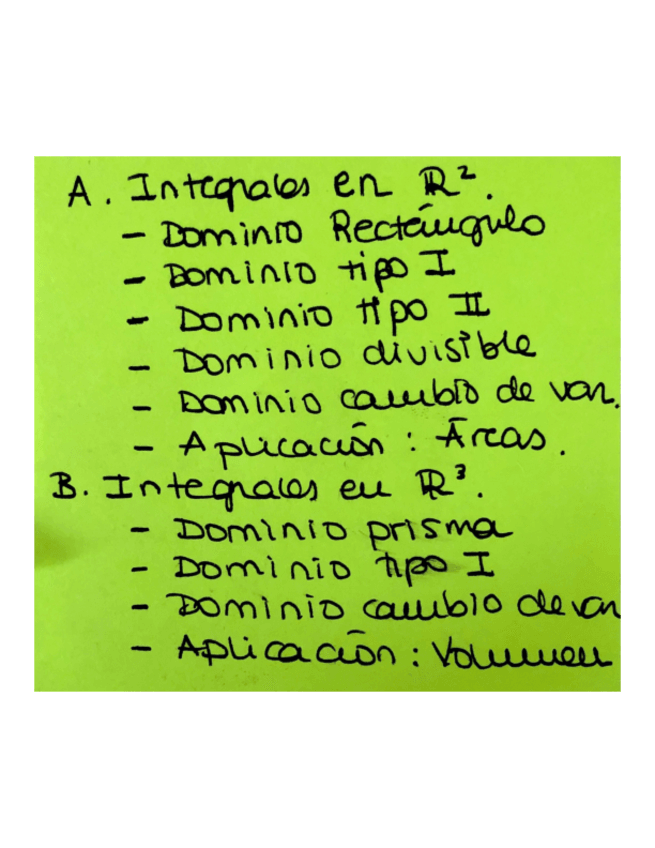 A. Integrales en ℝ².
- Dominio Rectángulo
- Dominio tipo I
- Dominio tipo II
- Dominio divisible
- Dominio cambio de var.
- Aplicación: Áreas.
B. Integrales en ℝ³.
- Dominio prisma
- Dominio tipo I
- Dominio cambio de var
- Aplicación: Volumen